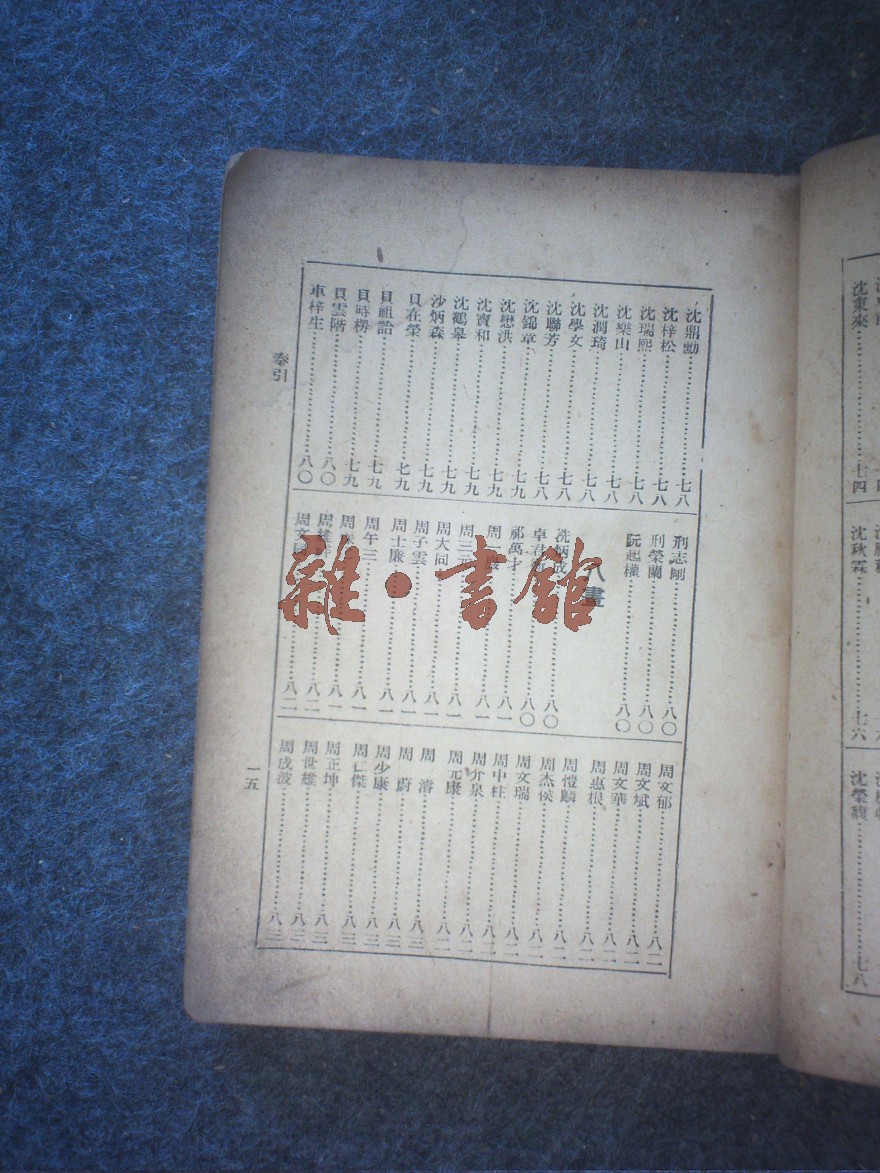 沈鼎勳……七八
沈梓松……七八
沈瑞熙……七八
沈樂山……七八
沈潤琦……七八
沈學文……七八
沈聯芳……七八
沈錦章……七九
沈懋洪……七九
沈寶和……七九
沈鶴皋……七九
沙炳森……七九
貝在榮……七九
貝祖詒……七九
貝時楞……七九
貝雲階……八〇
車梓生……八〇
刑志剛……八〇
刑榮蘭……八〇
阮起權……八〇
八畫
冼炳成……八〇
卓君……八〇
祁萬才……八一
周一……八一
周三……八一
周大同……八一
周子雲……八一
周士廉……八一
周午三……八一
周……八一
周……八二
周文……八二
周文郁……八二
周文斌……八二
周文華……八二
周惠根……八二
周愷麟……八二
周杰侯……八二
周文瑞……八二
周中柱……八二
周介泉……八二
周元康……八二
周濬……八三
周蔚……八三
周少康……八三
周仁傑……八三
周正坤……八三
周世雄……八三
周成波……八三
索引
一五
雜·書館
沈東來……七四
沈秋霖……七六
沈榮馥……七八